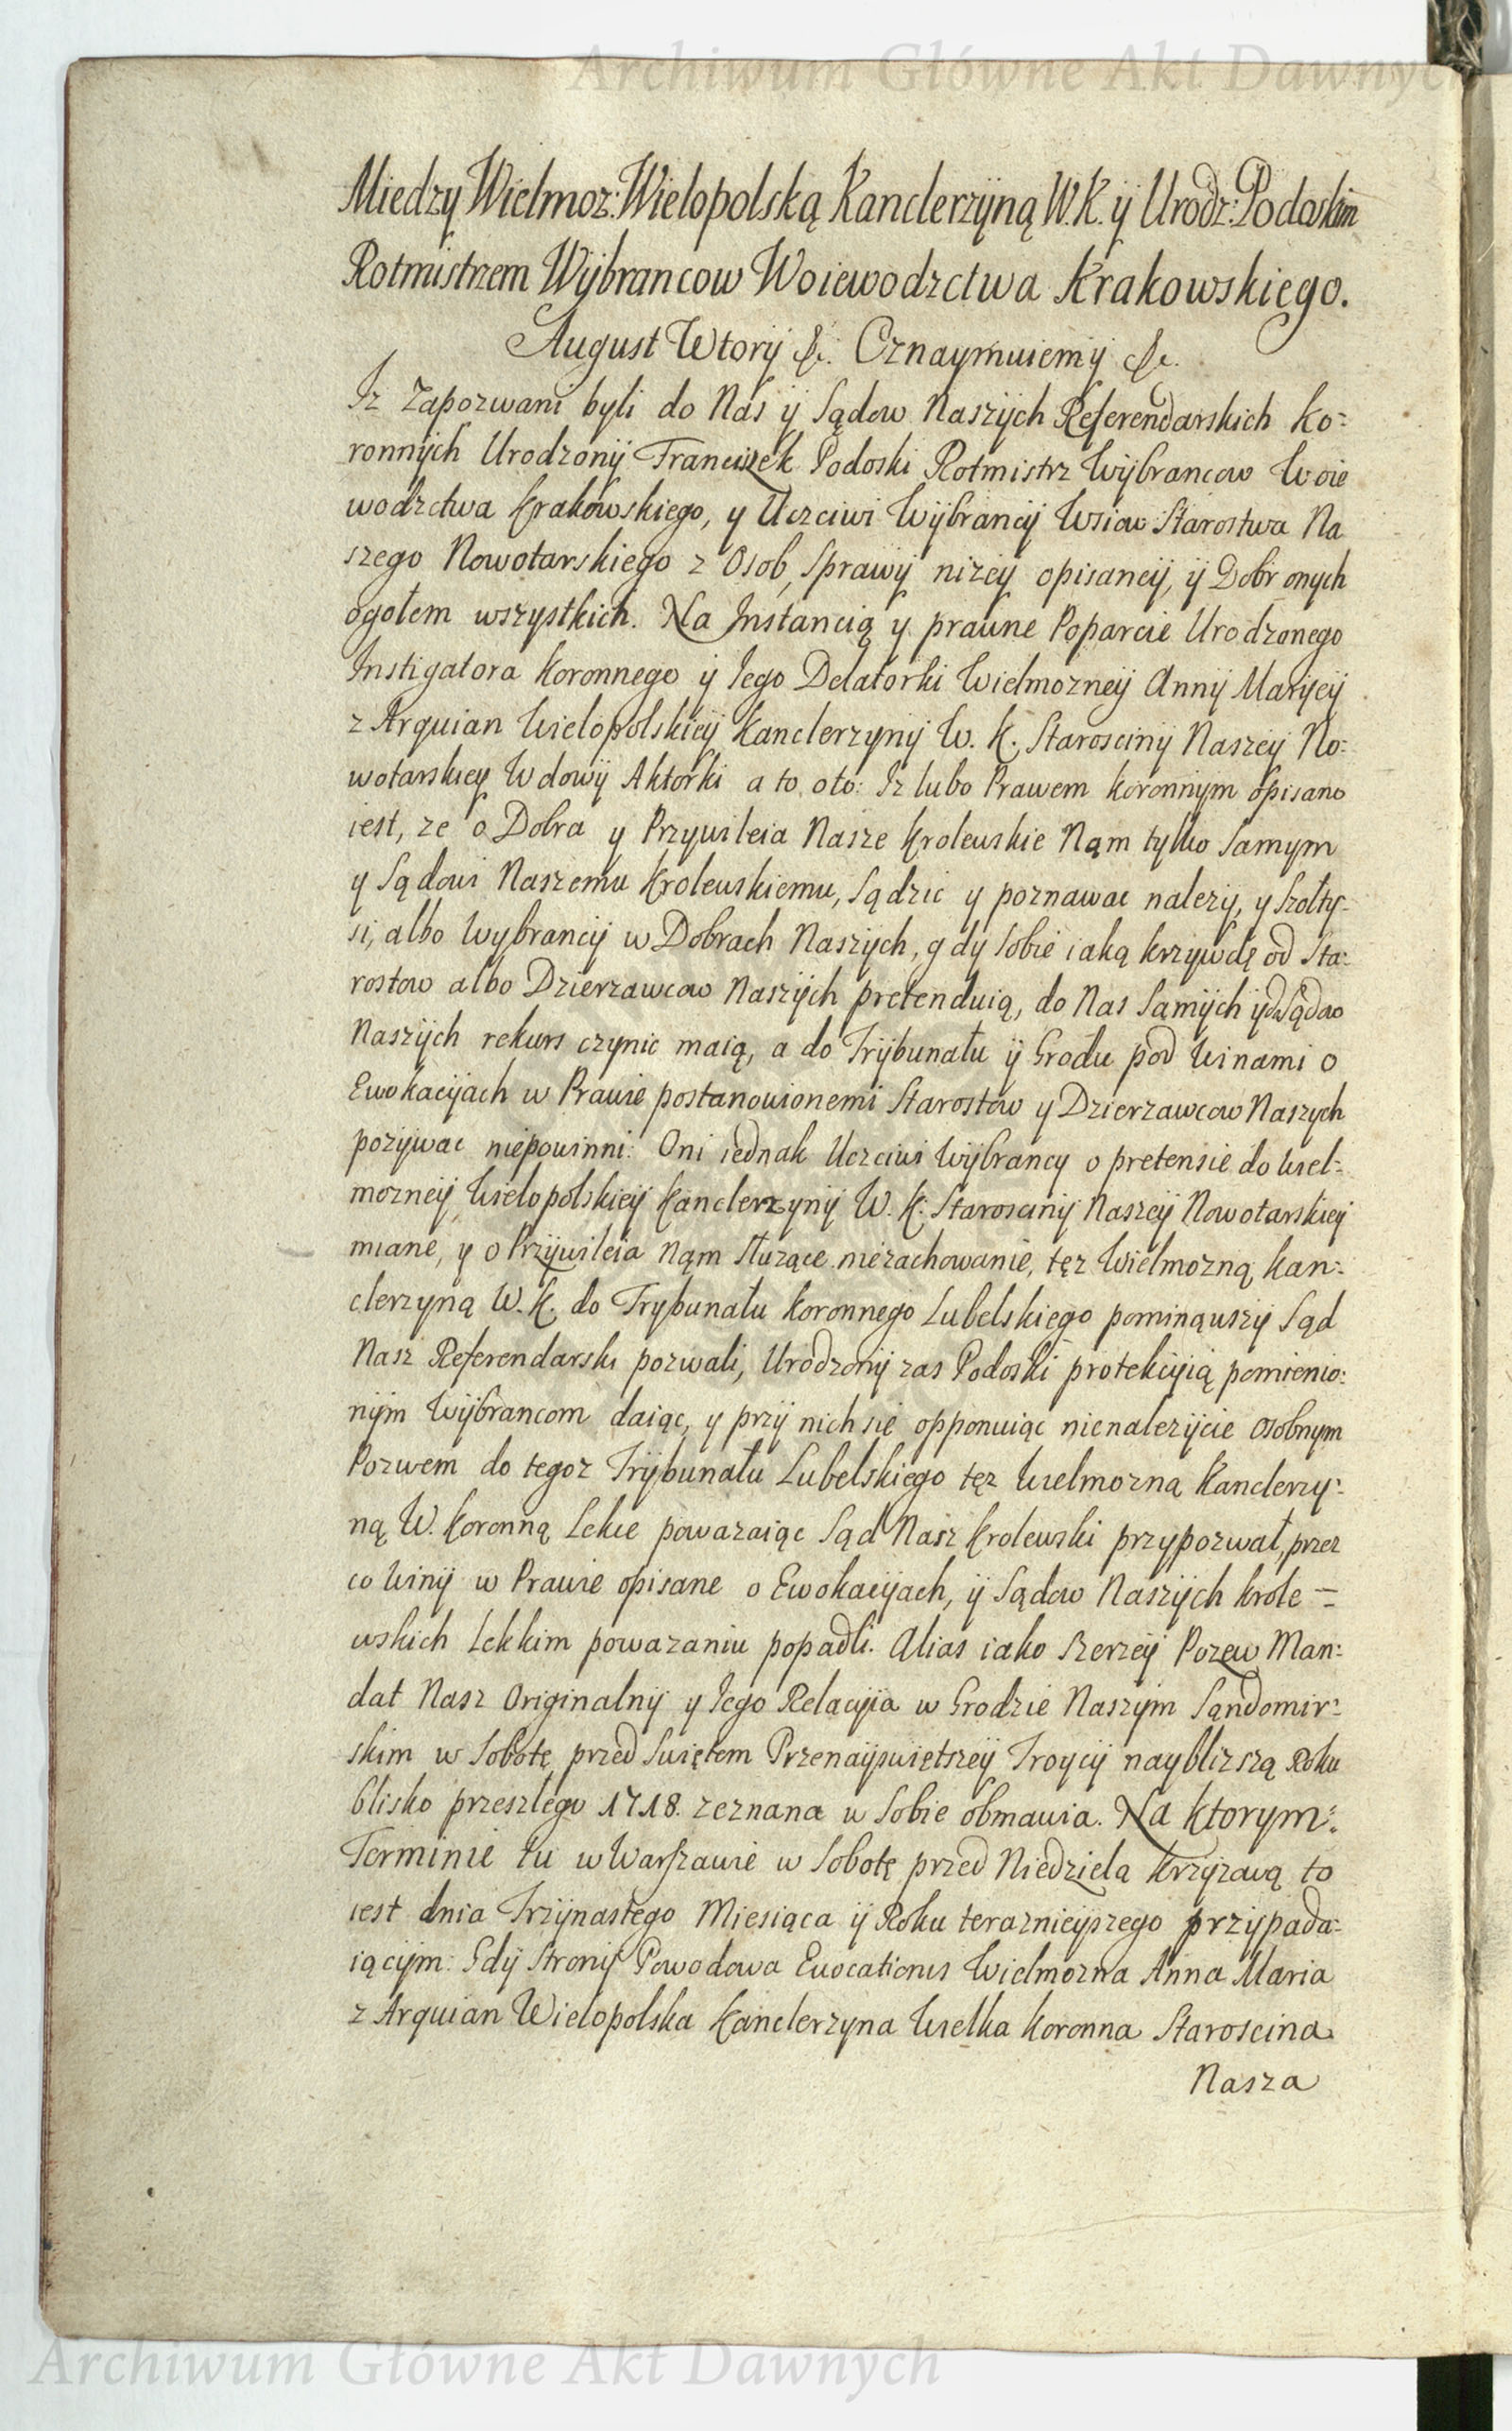 Archiwum Główne Akt Dawnych
Miedzy Wielmoz: Wielopolską Kanclerzyną W. K. ÿ Urodz: Podoskim
Rotmistrzem Wÿbrancow Woiewodzctwa Krakowskiego.
August Wtorÿ &c. Oznaymuiemÿ &c.
Iz Zapozwani byli do Nas ÿ Sądow Naszÿch Referendarskich Ko=
ronnÿch Urodzonÿ Franciszek Podoski Rotmistrz Wÿbrancow Woie
wodzctwa Krakowskiego, y Uczciwi Wÿbrancÿ Wsiow Starostwa Na
szego Nowotarskiego z Osob, Sprawÿ nizeÿ opisaneÿ, ÿ Dobr onych
ogołem wszystkich. Na Instancią y prawne Poparcie Urodzonego
Instigatora Koronnego ÿ Iego Delatorki Wielmozneÿ Annÿ Marÿeÿ
z Arquian Wielopolskieÿ Kanclerzynÿ W. K. Starosciny Naszeÿ No=
wotarskiey Wdowÿ Aktorki a to oto: Iz lubo Prawem koronnÿm opisano
iest, ze o Dobra y Przywileia Nasze Krolewskie Nąm tylko Samym
y Sądowi Naszemu Krolewskiemu, Sądzic y poznawac nalezy, y Szołty=
si, albo Wybrancÿ w Dobrach Naszÿch, gdy Sobie iaką krzywdę od Sta=
rostow albo Dzierzawcow Naszÿch pretenduią, do Nas Samÿch ÿ do Sądow
Naszÿch rekurs czynic maią, a do Trÿbunału ÿ Grodu pod Winami o
Ewokacÿach w Prawie postanowionemi Starostow y Dzierzawcow Naszych
pozÿwac niepowinni: Oni iednak Uczciwi Wÿbrancy o pretensie do Wiel=
mozneÿ Wielopolskieÿ Kanclerzynÿ W. K. Staroscinÿ Naszeÿ Nowotarskieÿ
miane, y o Przÿwileia Nąm służące niezachowanie, tęz Wielmozną Kan=
clerzyną W. K. do Trybunału Koronnego Lubelskiego pominąwszÿ Sąd
Nasz Referendarski pozwali, Urodzonÿ zas Podoski protekcÿią pomienio=
nÿm Wÿbrancom daiąc, y przÿ nich się opponuiąc nienalezÿcie osobnym
Pozwem do tegoz Trÿbunału Lubelskiego tęz Wielmozną Kanclerzy=
ną W. Koronną Lekie powazaiąc Sąd Nasz Krolewski przypozwał, przez
co Winÿ w Prawie opisane o Ewokacÿach, ÿ Sądow Naszÿch Krole=
wskich Lekkim powazaniu popadli. Alias iako Szerzeÿ Pozew Man=
dat Nasz Originalnÿ y Iego Relacÿia w Grodzie Naszÿm Sandomir=
skim w Sobotę przed Swiętem Przenaÿswiętszeÿ Troycÿ nayblizszą Roku
blisko przeszłego 1718. zeznana w Sobie obmawia. Na ktorym:
Terminie tu w Warszawie w Sobotę przed Niedzielą Krzÿzową to
iest dnia Trzÿnastego Miesiąca ÿ Roku teraznieÿszego przÿpada=
iącÿm: Gdÿ Stronÿ Powodowa Evocationis Wielmozna Anna Maria
z Arquian Wielopolska Kanclerzyna Wielka Koronna Staroscina
Nasza
Archiwum Główne Akt Dawnych